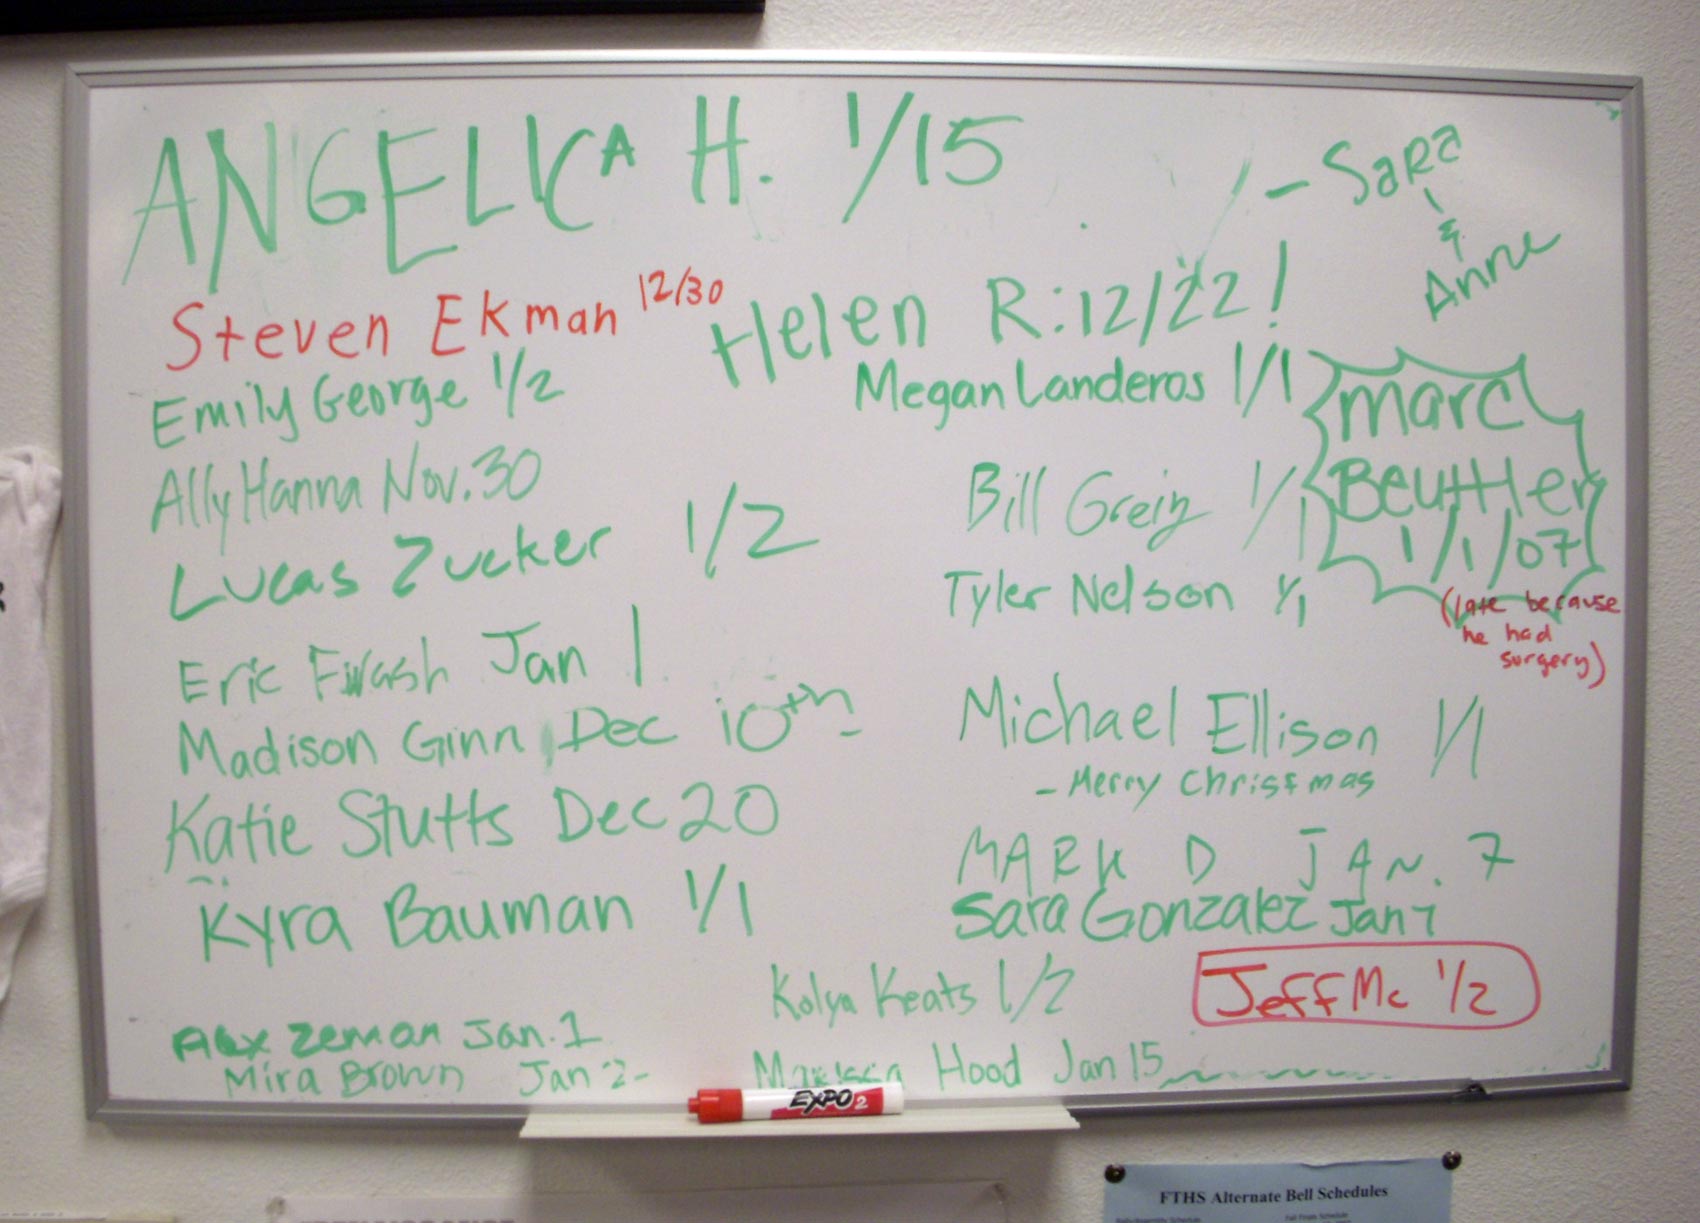 ANGELICA H. 1/15
- Sara
&
Anne
Steven Ekman 12/30
Helen R: 12/22!
Emily George 1/2
Megan Landeros 1/1
marc
Beuttler
1/1/07
(late because
he had
surgery)
Ally Hanna Nov. 30
Bill Greig 1/1
Lucas Zucker 1/2
Tyler Nelson 1/1
Eric Jan 1
Michael Ellison 1/1
- Merry Christmas
Madison Ginn Dec 10th
Katie Stutts Dec 20
MARK D JAN. 7
Kyra Bauman 1/1
Sara Gonzalez Jan 7
Kolya Keats 1/2
Jeff Mc 1/2
Alex Zeman Jan. 1
Mira Brown Jan 2
Marissa Hood Jan 15
EXPO 2
FTHS Alternate Bell Schedules